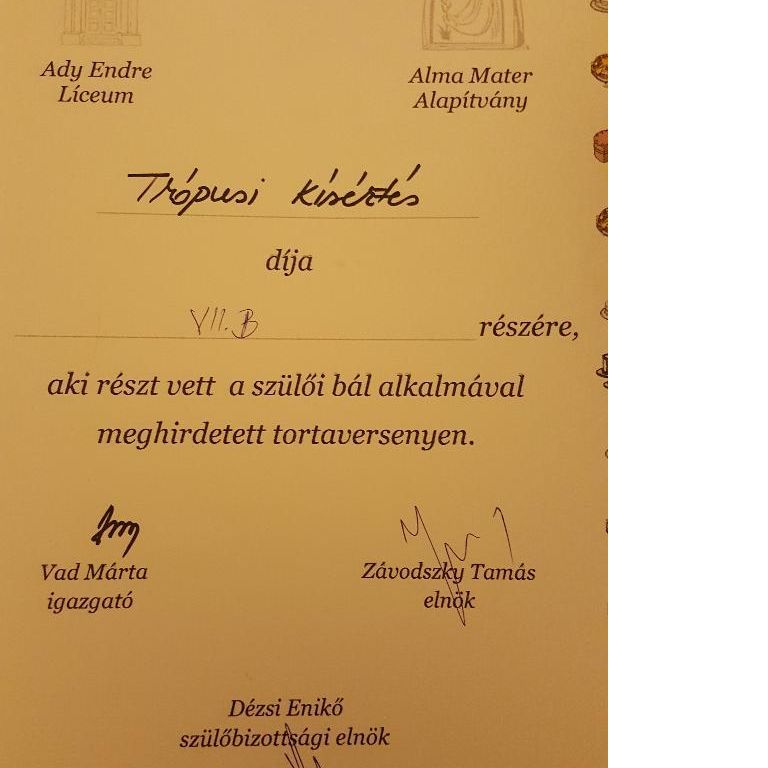 Ady Endre
Líceum
Alma Mater
Alapítvány
Trópusi kísértés
díja
VII. B
részére,
aki részt vett a szülői bál alkalmával
meghirdetett tortaversenyen.
Vad Márta
igazgató
Závodszky Tamás
elnök
Dézsi Enikő
szülőbizottsági elnök